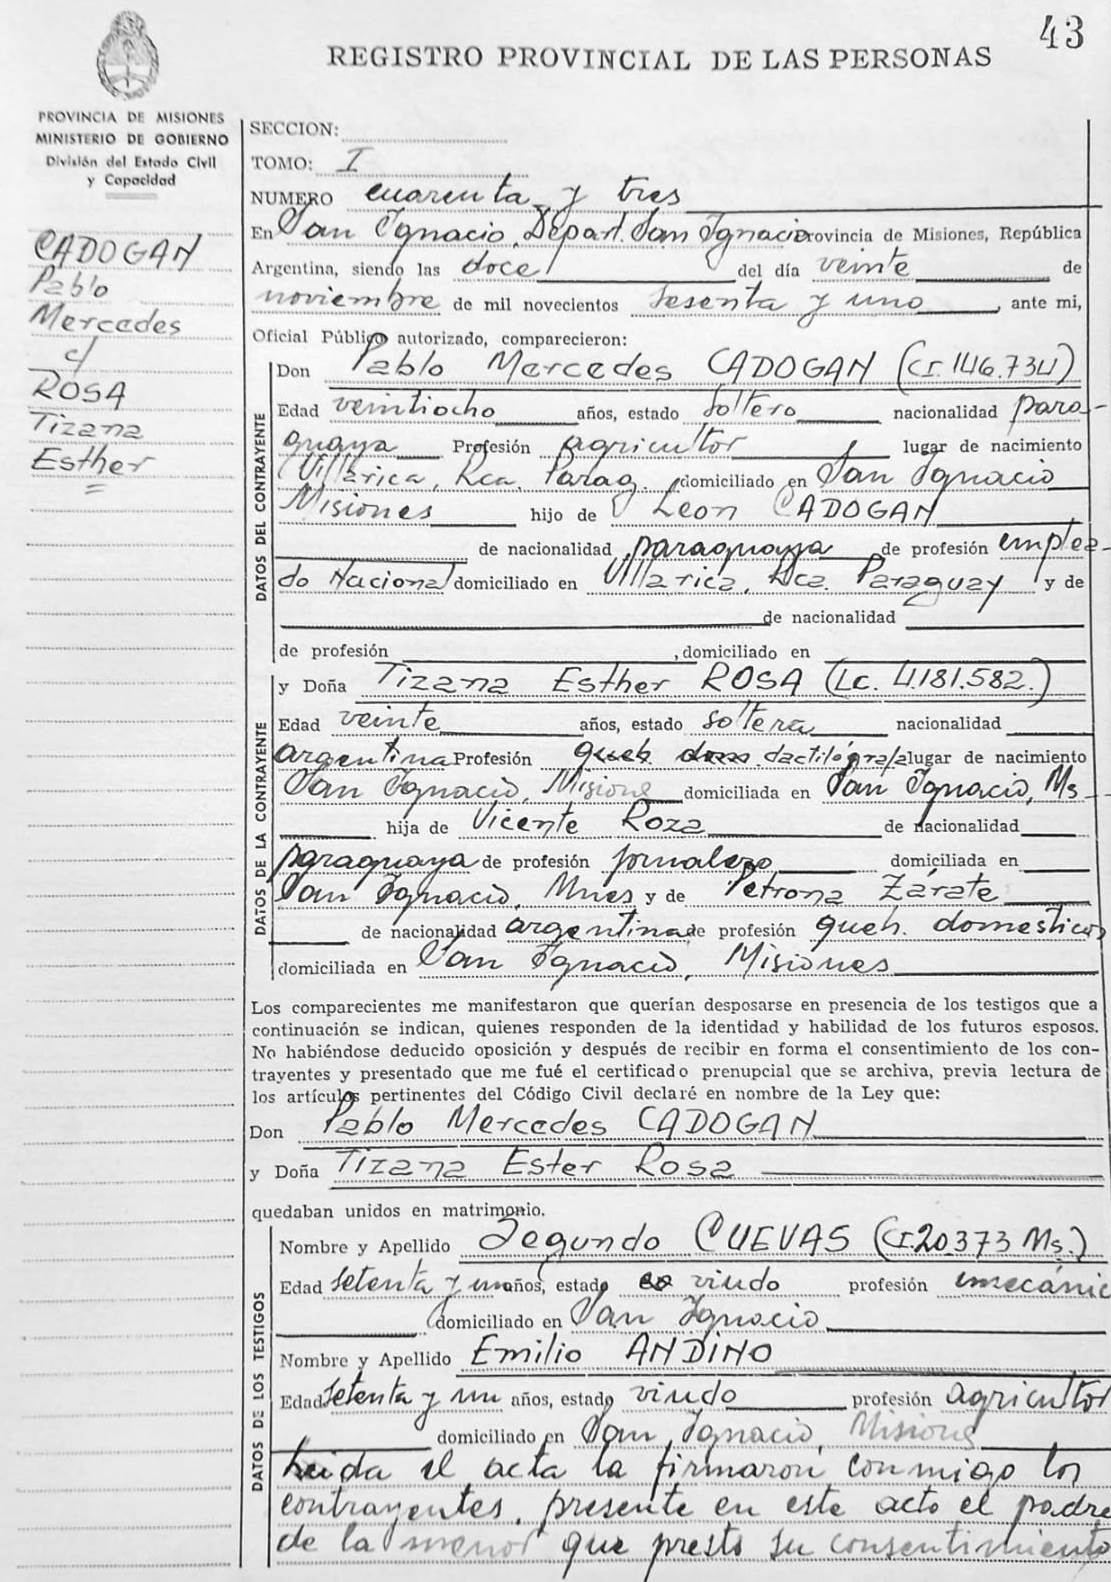 43
REGISTRO PROVINCIAL DE LAS PERSONAS
PROVINCIA DE MISIONES
MINISTERIO DE GOBIERNO
División del Estado Civil
y Capacidad
CADOGAN
Pablo
Mercedes
c/
ROSA
Tizana
Esther
SECCION:
TOMO: I
NUMERO cuarenta y tres
En San Ignacio, Depart. San Ignacio Provincia de Misiones, República
Argentina, siendo las doce del día veinte de
noviembre de mil novecientos sesenta y uno, ante mi,
Oficial Público autorizado, comparecieron:
DATOS DEL CONTRAYENTE
Don Pablo Mercedes CADOGAN (CI. 146.734)
Edad veintiocho años, estado soltero nacionalidad para-
guaya Profesión agricultor lugar de nacimiento
Villarica, Rca. Parag. domiciliado en San Ignacio
Misiones hijo de León CADOGAN
de nacionalidad paraguaya de profesión emplea-
do Nacional domiciliado en Villarica, Rca. Paraguay y de
de nacionalidad
de profesión , domiciliado en
DATOS DE LA CONTRAYENTE
y Doña Tizana Esther ROSA (LC. 4.181.582.)
Edad veinte años, estado soltera nacionalidad
argentina Profesión queh. dom. dactilógrafa lugar de nacimiento
San Ignacio, Misiones domiciliada en San Ignacio, Ms
hija de Vicente Roza de nacionalidad
paraguaya de profesión jornalero domiciliada en
San Ignacio, Mnes y de Petrona Zárate
de nacionalidad argentina de profesión queh. domesticos
domiciliada en San Ignacio, Misiones
Los comparecientes me manifestaron que querían desposarse en presencia de los testigos que a
continuación se indican, quienes responden de la identidad y habilidad de los futuros esposos.
No habiéndose deducido oposición y después de recibir en forma el consentimiento de los con-
trayentes y presentado que me fué el certificado prenupcial que se archiva, previa lectura de
los artículos pertinentes del Código Civil declaré en nombre de la Ley que:
Don Pablo Mercedes CADOGAN
y Doña Tizana Ester Rosa
quedaban unidos en matrimonio.
DATOS DE LOS TESTIGOS
Nombre y Apellido Segundo CUEVAS (CI. 20.373 Ms.)
Edad setenta y un años, estado viudo profesión mecánic
domiciliado en San Ignacio
Nombre y Apellido Emilio ANDINO
Edad setenta y un años, estado viudo profesión agricultor
domiciliado en San Ignacio, Misiones
Leida el acta la firmaron conmigo los
contrayentes, presente en este acto el padre
de la menor que presto su consentimiento